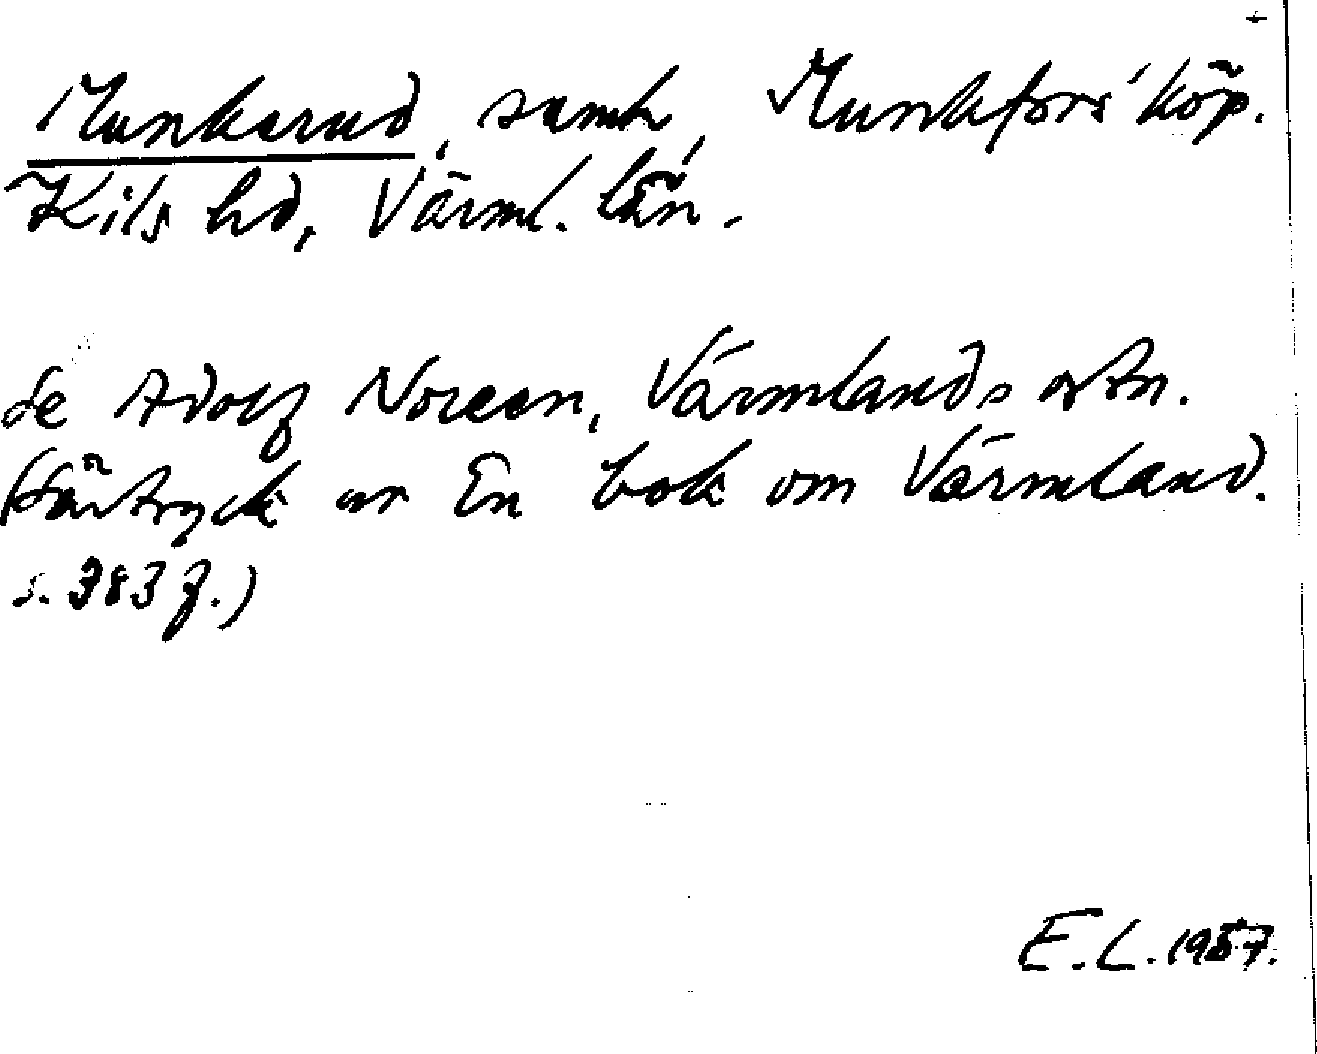 Munkerud, samh, Munkfors' köp.
Kils hd, Värml. län.
Se Adolf Noreen, Värmlands ortn.
(Särtryck ur En bok om Värmland.
s. 383 f.)
E.L. 1957.